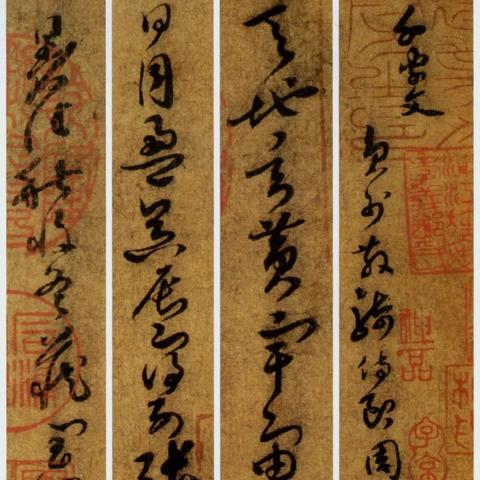 千字文
員外散騎侍郎周
天地玄黃宇宙
日月盈昃辰宿列張
暑往秋收冬藏閏